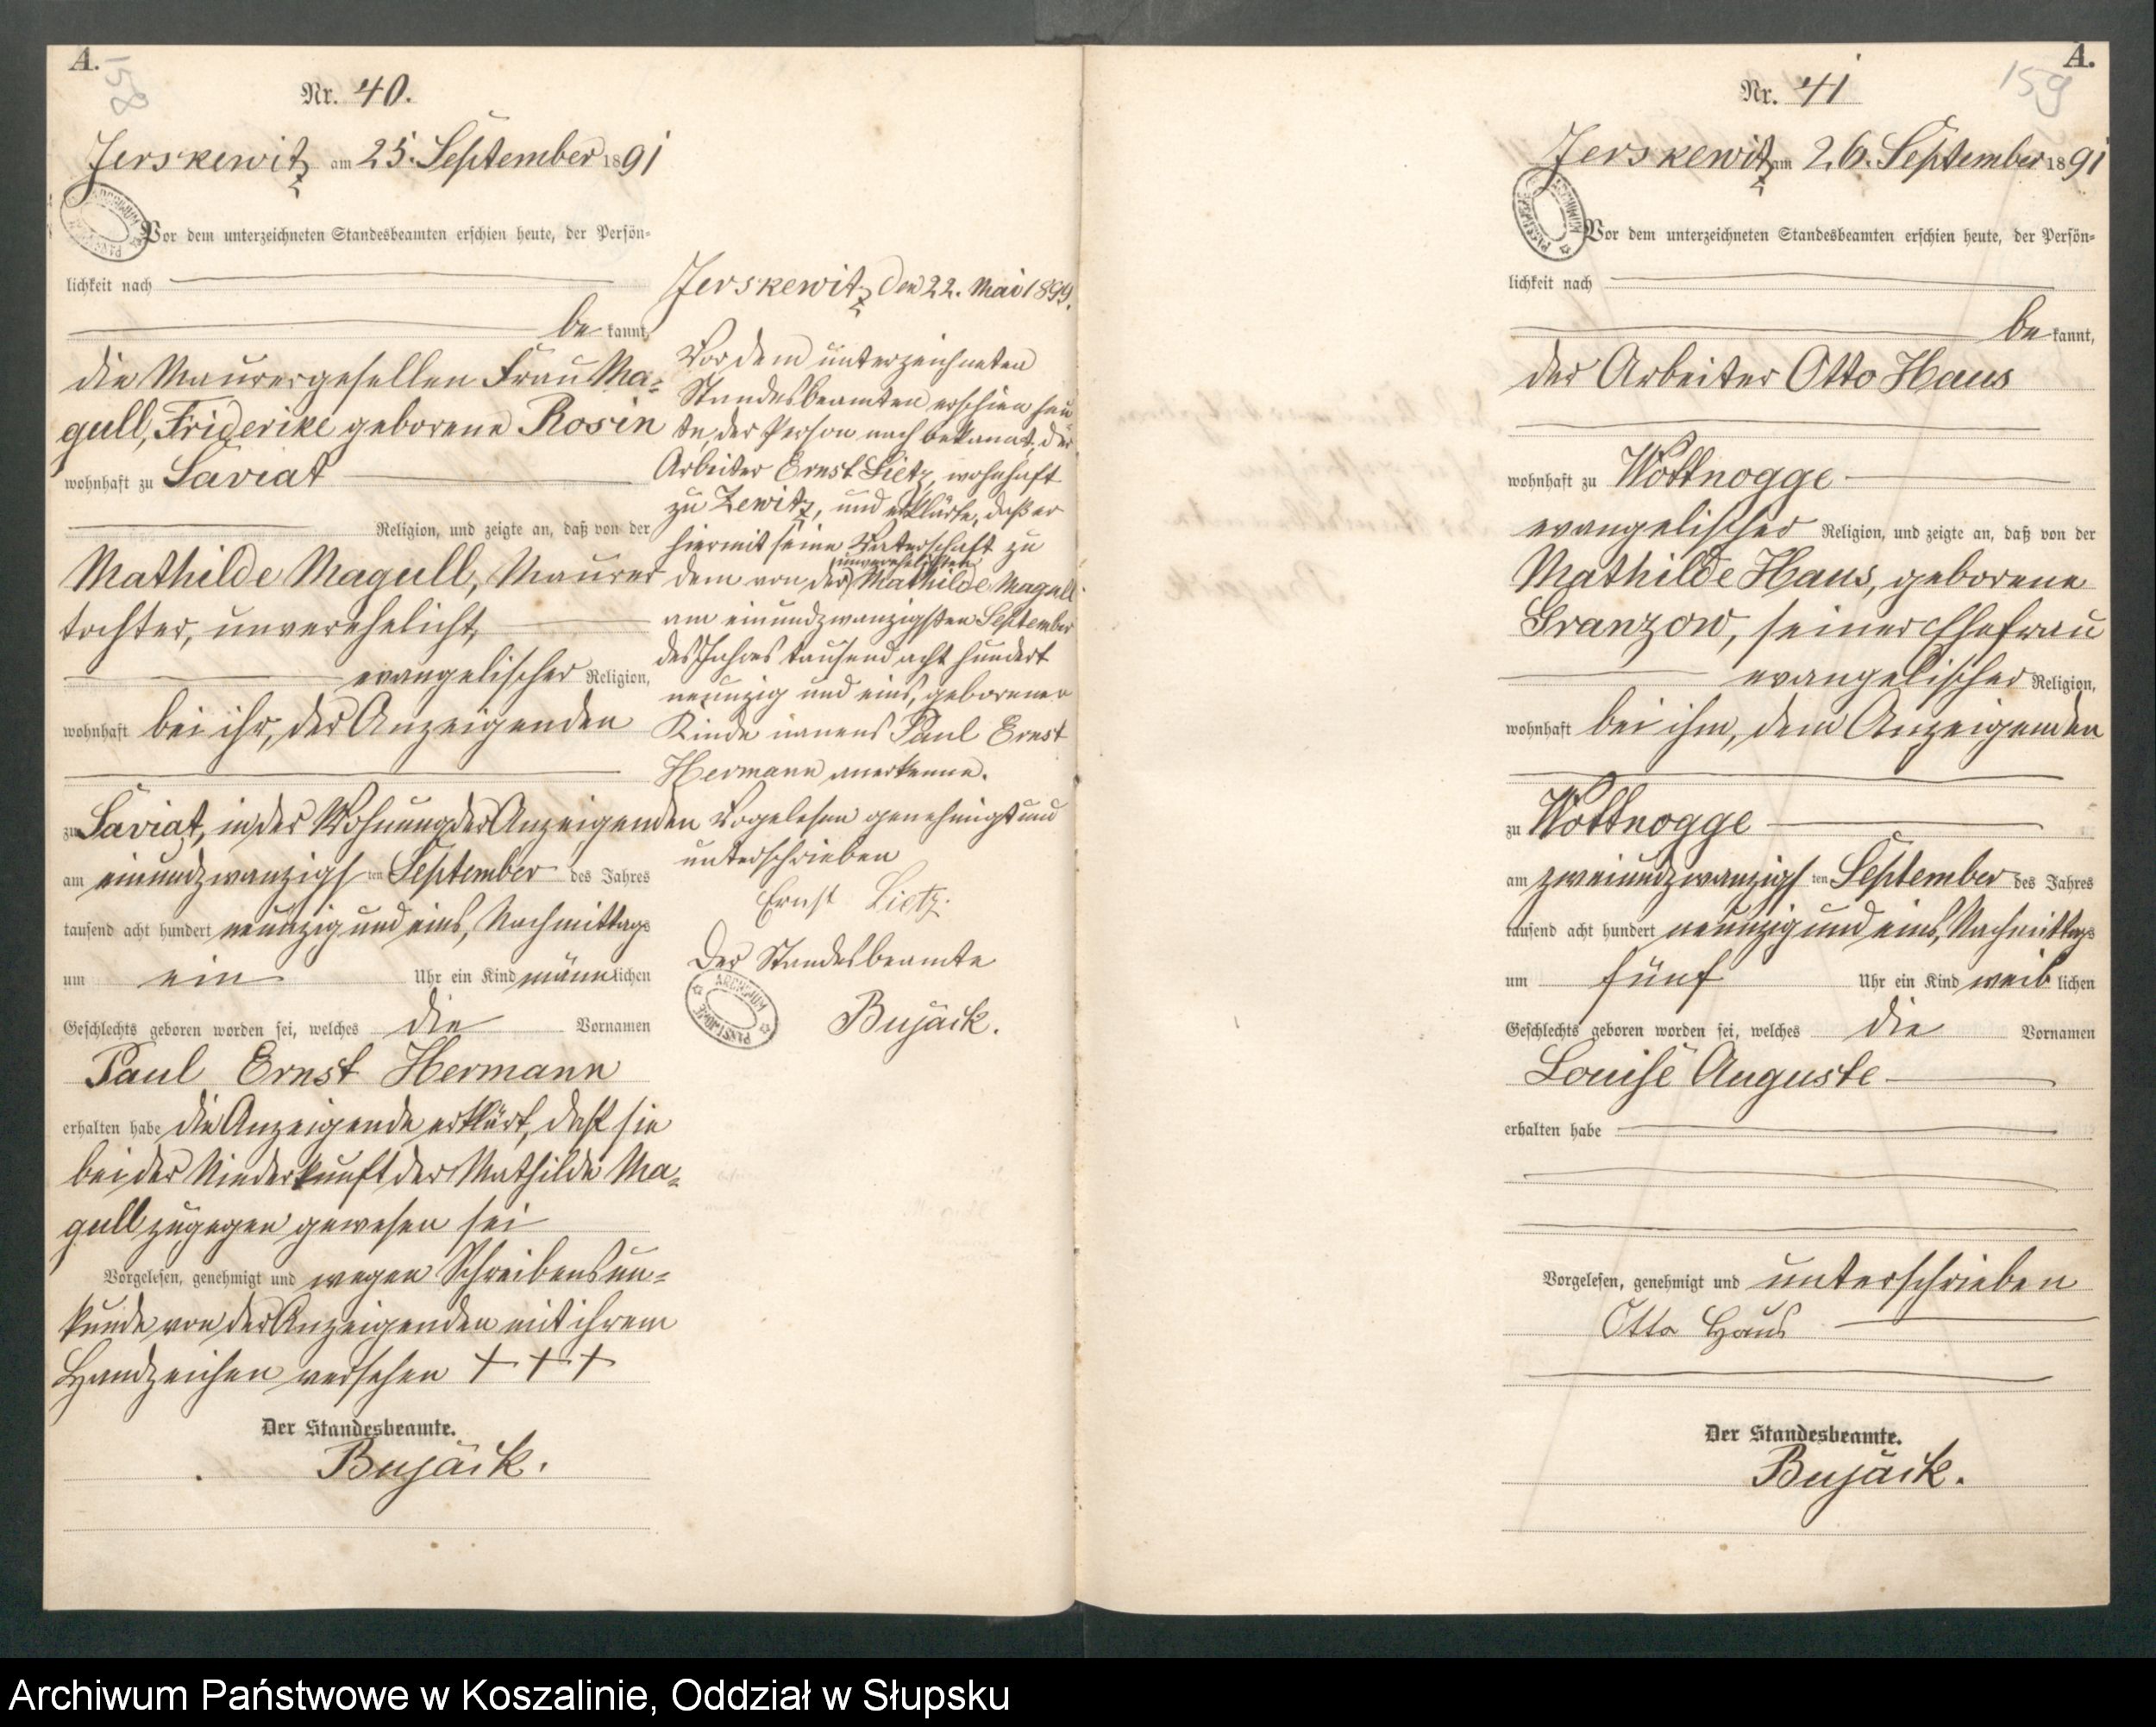 A.
158
Nr. 40.
Jerskewitz am 25. September 1891
Vor dem unterzeichneten Standesbeamten erschien heute, der Persön=
lichkeit nach
be kannt,
die Maurergesellen Frau Ma=
gull, Friderike geborene Rosin
wohnhaft zu Saviat
Religion, und zeigte an, daß von der
Mathilde Magull, Maurer
tochter, unverehelicht,
evangelischer Religion,
wohnhaft bei ihr, der Anzeigenden
zu Saviat, in der Wohnung der Anzeigenden
am einundzwanzigs ten September des Jahres
tausend acht hundert neunzig und eins, Nachmittags
um ein Uhr ein Kind männlichen
Geschlechts geboren worden sei, welches die Vornamen
Paul Ernst Hermann
erhalten habe die Anzeigende erklärt, daß sie
bei der Niederkunft der Mathilde Ma=
gull zugegen gewesen sei
Vorgelesen, genehmigt und wegen Schreibensun=
kunde von der Anzeigenden mit ihrem
Handzeichen versehen + + +
Der Standesbeamte.
Bujack.
Jerskewitz, den 22. Mai 1899.
Vor dem unterzeichneten
Standesbeamten erschien heu
te, der Person nach bekannt, der
Arbeiter Ernst Lietz, wohnhaft
zu Zewitz, und erklärte, daß er
hiermit seine Vaterschaft zu
unverehelichten
dem von der Mathilde Magull
am einundzwanzigsten September
des Jahres tausend acht hundert
neunzig und eins, geborenen
Kinde namens Paul Ernst
Hermann anerkenne.
Vorgelesen genehmigt und
unterschrieben
Ernst Lietz.
Der Standesbeamte
ARCHIWUM PAŃSTWOWE
Bujack.
A.
159
Nr. 41
Jerskewitz am 26. September 1891
Vor dem unterzeichneten Standesbeamten erschien heute, der Persön=
lichkeit nach
be kannt,
der Arbeiter Otto Haus
wohnhaft zu Wottnogge
evangelischer Religion, und zeigte an, daß von der
Mathilde Haus, geborene
Granzow, seiner Ehefrau
evangelischer Religion,
wohnhaft bei ihm, dem Anzeigenden
zu Wottnogge
am zweiundzwanzigs ten September des Jahres
tausend acht hundert neunzig und eins, Nachmittags
um fünf Uhr ein Kind weib lichen
Geschlechts geboren worden sei, welches die Vornamen
Louise Auguste
erhalten habe
Vorgelesen, genehmigt und unterschrieben
Otto Haus
Der Standesbeamte.
Bujack.
Archiwum Państwowe w Koszalinie, Oddział w Słupsku